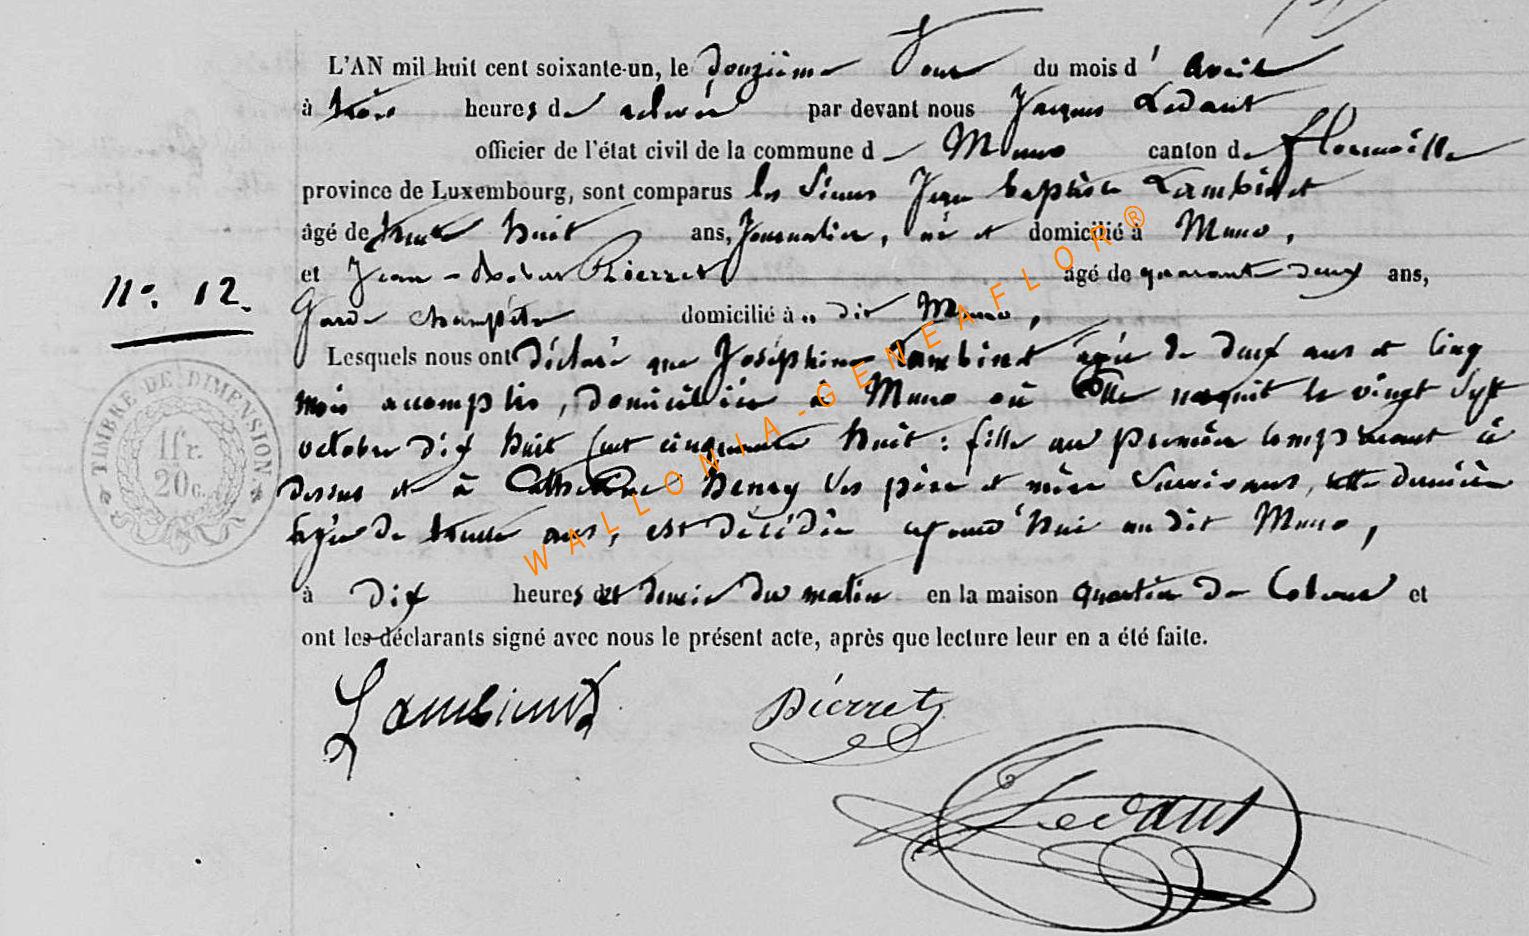 L'AN mil huit cent soixante-un, le douzième Jour du mois d' avril
à trois heures de relevée par devant nous Jacques Ledant
officier de l'état civil de la commune de Muno canton de florenville
province de Luxembourg, sont comparus les Sieurs Jean baptiste Lambinet
âgé de trente huit ans, Journalier, né et domicilié à Muno,
et Jean - Pierret âgé de quarante deux ans,
Garde champêtre domicilié à dit Muno,
N°. 12.
Lesquels nous ont déclaré que Joséphine Lambinet âgée de deux ans et cinq
mois accomplis, domiciliée à Muno où Elle naquit le vingt Sept
octobre dix huit cent cinquante huit : fille au premier comparant ci
dessus et à Catherine henry Ses père et mère Survivans, cette dernière
âgée de trente ans, est décédée aujourd'hui au dit Muno,
à dix heures et demie du matin en la maison quartier de et
ont les déclarants signé avec nous le présent acte, après que lecture leur en a été faite.
TIMBRE DE DIMENSION
1fr.
20c.
Lambinet Pierret
JLedant
WALLONIA-GENEAFLOR®